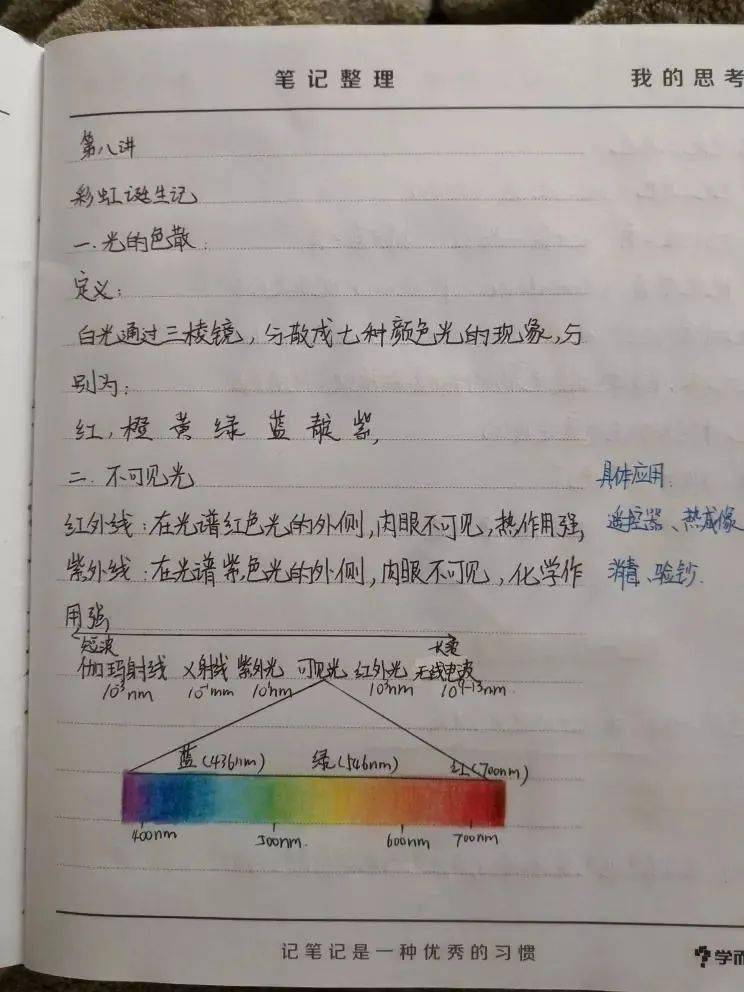 笔记整理
我的思考
第八讲
彩虹诞生记
一.光的色散:
定义:
白光通过三棱镜,分散成七种颜色光的现象,分
别为:
红,橙 黄 绿 蓝 靛 紫,
二.不可见光
具体应用:
红外线:在光谱红色光的外侧,肉眼不可见,热作用强,
遥控器、热成像
紫外线:在光谱紫色光的外侧,肉眼不可见,化学作
消毒、验钞.
用强,
短波 长波
伽玛射线 X射线 紫外光 可见光 红外光 无线电波
10⁻³nm 10⁻¹mm 10¹nm 10³nm 10⁹⁻¹³nm.
蓝(436nm) 绿(546nm) 红(700nm)
400nm 500nm. 600nm 700nm
记笔记是一种优秀的习惯
学而